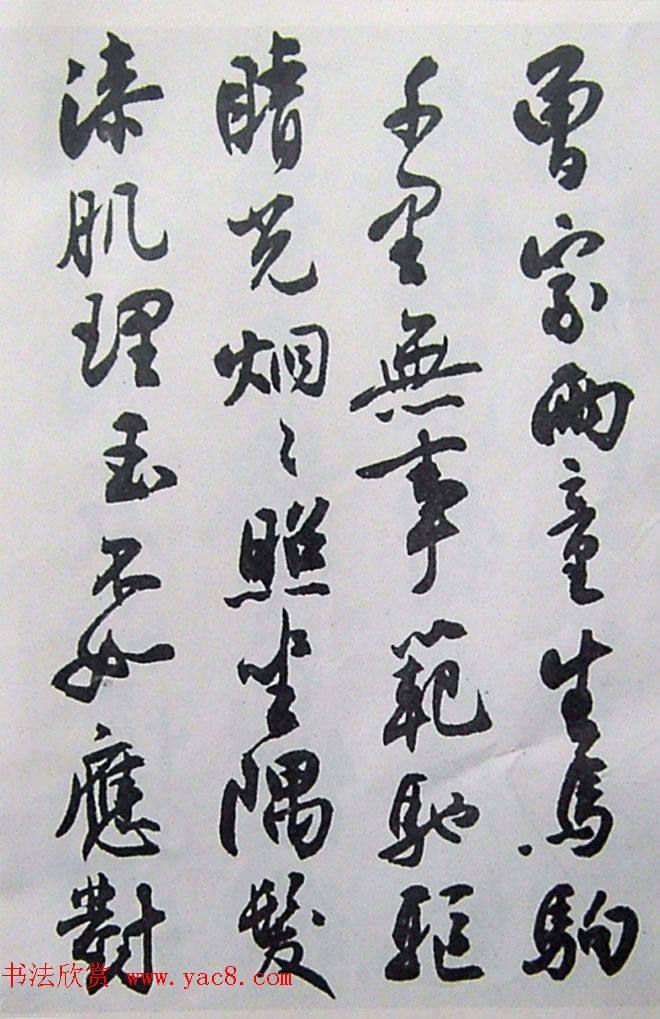 曾家兩童生馬駒
千里無事範馳驅
睛光炯〻照坐隅髮
漆肌理玉不如應對
书法欣赏 www.yac8.com